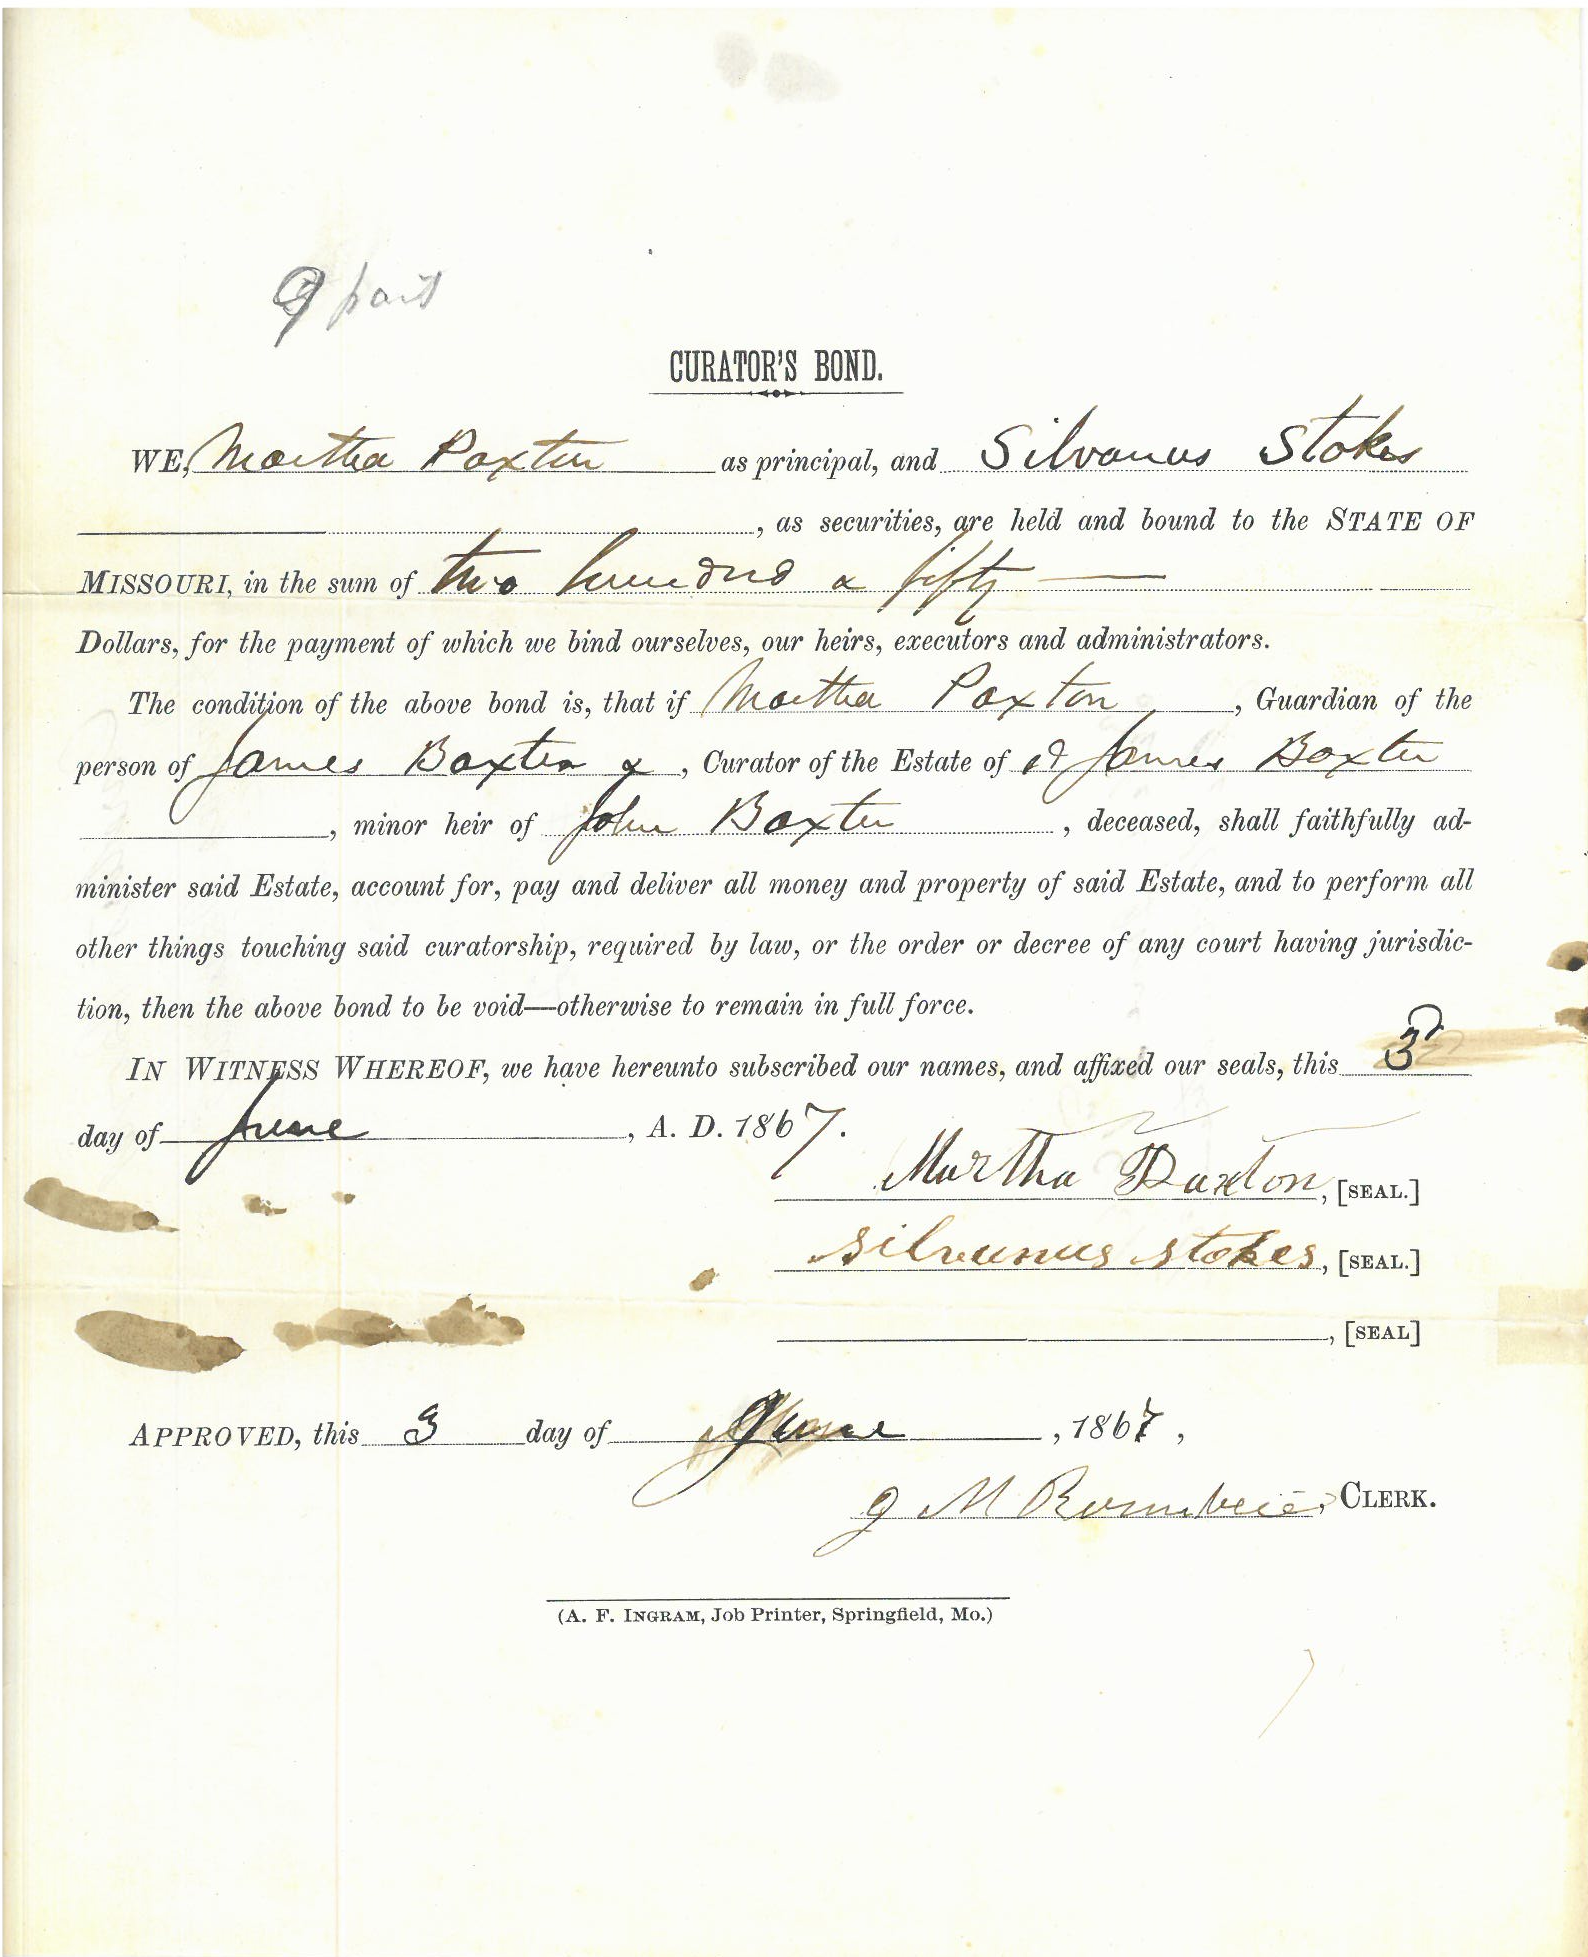 9 part
CURATOR'S BOND.
WE, Martha Paxton as principal, and Silvanus Stokes
, as securities, are held and bound to the STATE OF
MISSOURI, in the sum of two hundred & fifty
Dollars, for the payment of which we bind ourselves, our heirs, executors and administrators.
The condition of the above bond is, that if Martha Paxton, Guardian of the
person of James Baxter &, Curator of the Estate of sd James Baxter
, minor heir of John Baxter, deceased, shall faithfully ad-
minister said Estate, account for, pay and deliver all money and property of said Estate, and to perform all
other things touching said curatorship, required by law, or the order or decree of any court having jurisdic-
tion, then the above bond to be void—otherwise to remain in full force.
IN WITNESS WHEREOF, we have hereunto subscribed our names, and affixed our seals, this 3d
day of June, A. D. 1867.
Martha Paxton, [SEAL.]
Silvanus Stokes, [SEAL.]
, [SEAL]
APPROVED, this 3 day of June, 1867,
J M, CLERK.
(A. F. INGRAM, Job Printer, Springfield, Mo.)